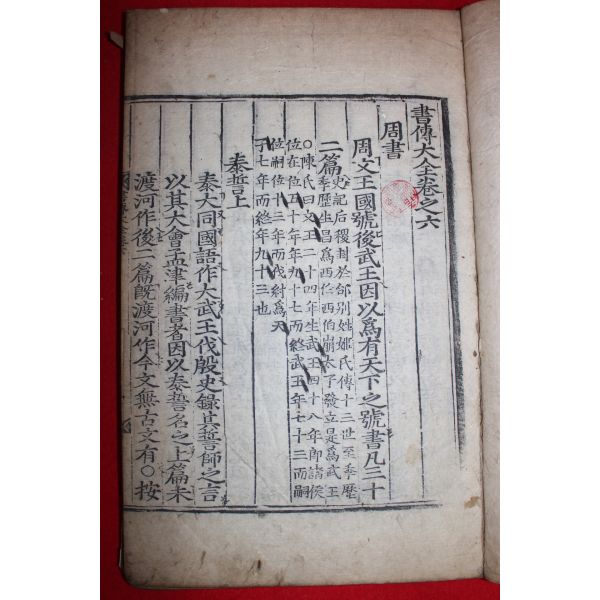 書傳大全卷之六
周書
周文王國號後武王因以爲有天下之號書凡三十
二篇
史記后稷封於邰別姓姬氏傳十三世至季歷
季歷生昌爲西伯西伯崩太子發立是爲武王
○陳氏曰文王二十四年生武王四十八年即諸侯
位在位五十年年九十七而終武王年七十三而嗣
位嗣位十三年而伐紂爲天
子七年而終年九十三也
泰誓上
泰大同國語作大武王伐殷史錄其誓師之言
以其大會孟津編書者因以泰誓名之上篇未
渡河作後二篇旣渡河作今文無古文有○按